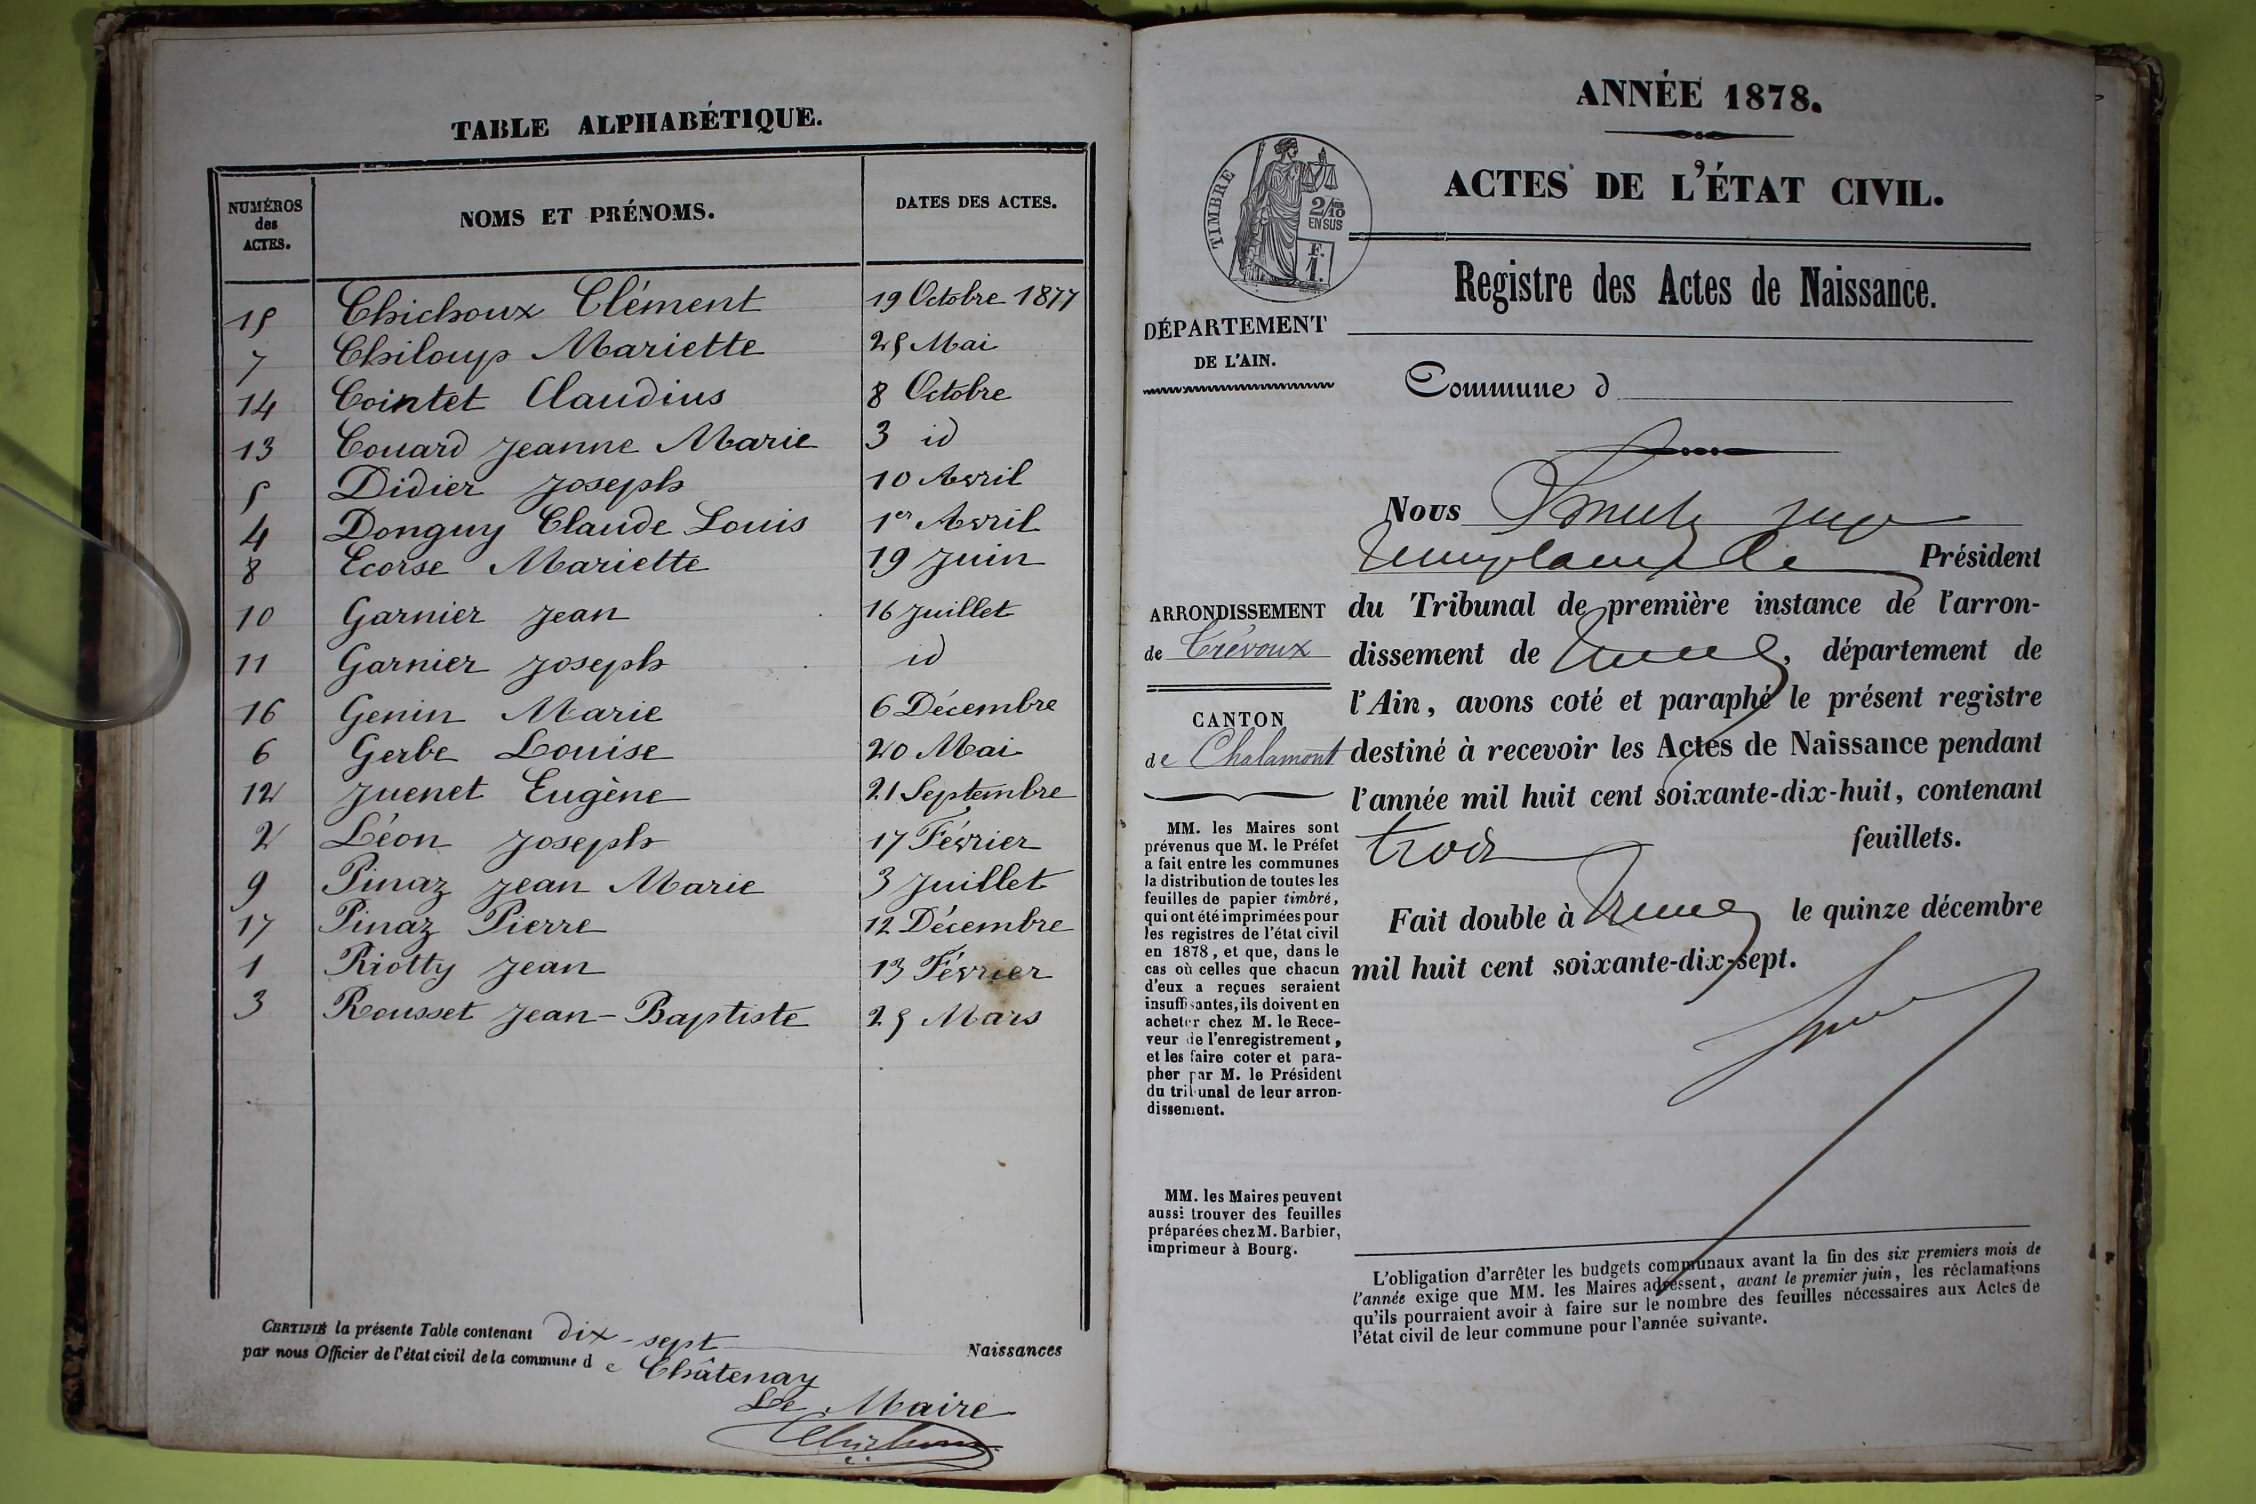 TABLE ALPHABÉTIQUE.
NUMÉROS des ACTES.
NOMS ET PRÉNOMS.
DATES DES ACTES.
15 Chichoux Clément 19 Octobre 1877
7 Chiloup Mariette 25 Mai
14 Cointet Claudius 8 Octobre
13 Couard Jeanne Marie 3 id
5 Didier Joseph 10 Avril
4 Donguy Claude Louis 1er Avril
8 Ecorse Mariette 19 Juin
10 Garnier Jean 16 Juillet
11 Garnier Joseph id
16 Genin Marie 6 Décembre
6 Gerbe Louise 20 Mai
12 Juenet Eugène 21 Septembre
2 Léon Joseph 17 Février
9 Pinaz Jean Marie 3 Juillet
17 Pinaz Pierre 12 Décembre
1 Riotty Jean 13 Février
3 Rousset Jean-Baptiste 25 Mars
CERTIFIÉ la présente Table contenant dix-sept Naissances
par nous Officier de l'état civil de la commune d e Châtenay
Le Maire
ANNÉE 1878.
ACTES DE L'ÉTAT CIVIL.
TIMBRE
2/10 EN SUS
F. 1.
Registre des Actes de Naissance.
DÉPARTEMENT
DE L'AIN.
Commune d
ARRONDISSEMENT
de Trévoux
CANTON
de Chalamont
MM. les Maires sont
prévenus que M. le Préfet
a fait entre les communes
la distribution de toutes les
feuilles de papier timbré,
qui ont été imprimées pour
les registres de l'état civil
en 1878, et que, dans le
cas où celles que chacun
d'eux a reçues seraient
insuffisantes, ils doivent en
acheter chez M. le Rece-
veur de l'enregistrement,
et les faire coter et para-
pher par M. le Président
du tribunal de leur arron-
dissement.
MM. les Maires peuvent
aussi trouver des feuilles
préparées chez M. Barbier,
imprimeur à Bourg.
Nous juge
remplaçant le Président
du Tribunal de première instance de l'arron-
dissement de Trévoux, département de
l'Ain, avons coté et paraphé le présent registre
destiné à recevoir les Actes de Naissance pendant
l'année mil huit cent soixante-dix-huit, contenant
trois feuillets.
Fait double à Trévoux le quinze décembre
mil huit cent soixante-dix-sept.
L'obligation d'arrêter les budgets communaux avant la fin des six premiers mois de
l'année exige que MM. les Maires adressent, avant le premier juin, les réclamations
qu'ils pourraient avoir à faire sur le nombre des feuilles nécessaires aux Actes de
l'état civil de leur commune pour l'année suivante.